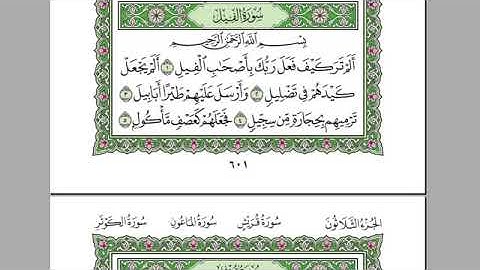 سُورَةُ الْفِيلِ
بِسْمِ اللَّهِ الرَّحْمَٰنِ الرَّحِيمِ
أَلَمْ تَرَ كَيْفَ فَعَلَ رَبُّكَ بِأَصْحَابِ الْفِيلِ ١ أَلَمْ يَجْعَلْ
كَيْدَهُمْ فِي تَضْلِيلٍ ٢ وَأَرْسَلَ عَلَيْهِمْ طَيْرًا أَبَابِيلَ ٣
تَرْمِيهِم بِحِجَارَةٍ مِّن سِجِّيلٍ ٤ فَجَعَلَهُمْ كَعَصْفٍ مَّأْكُولٍ ٥
٦٠١
الجزء الثلاثون سورة قريش سورة الماعون سورة الكوثر